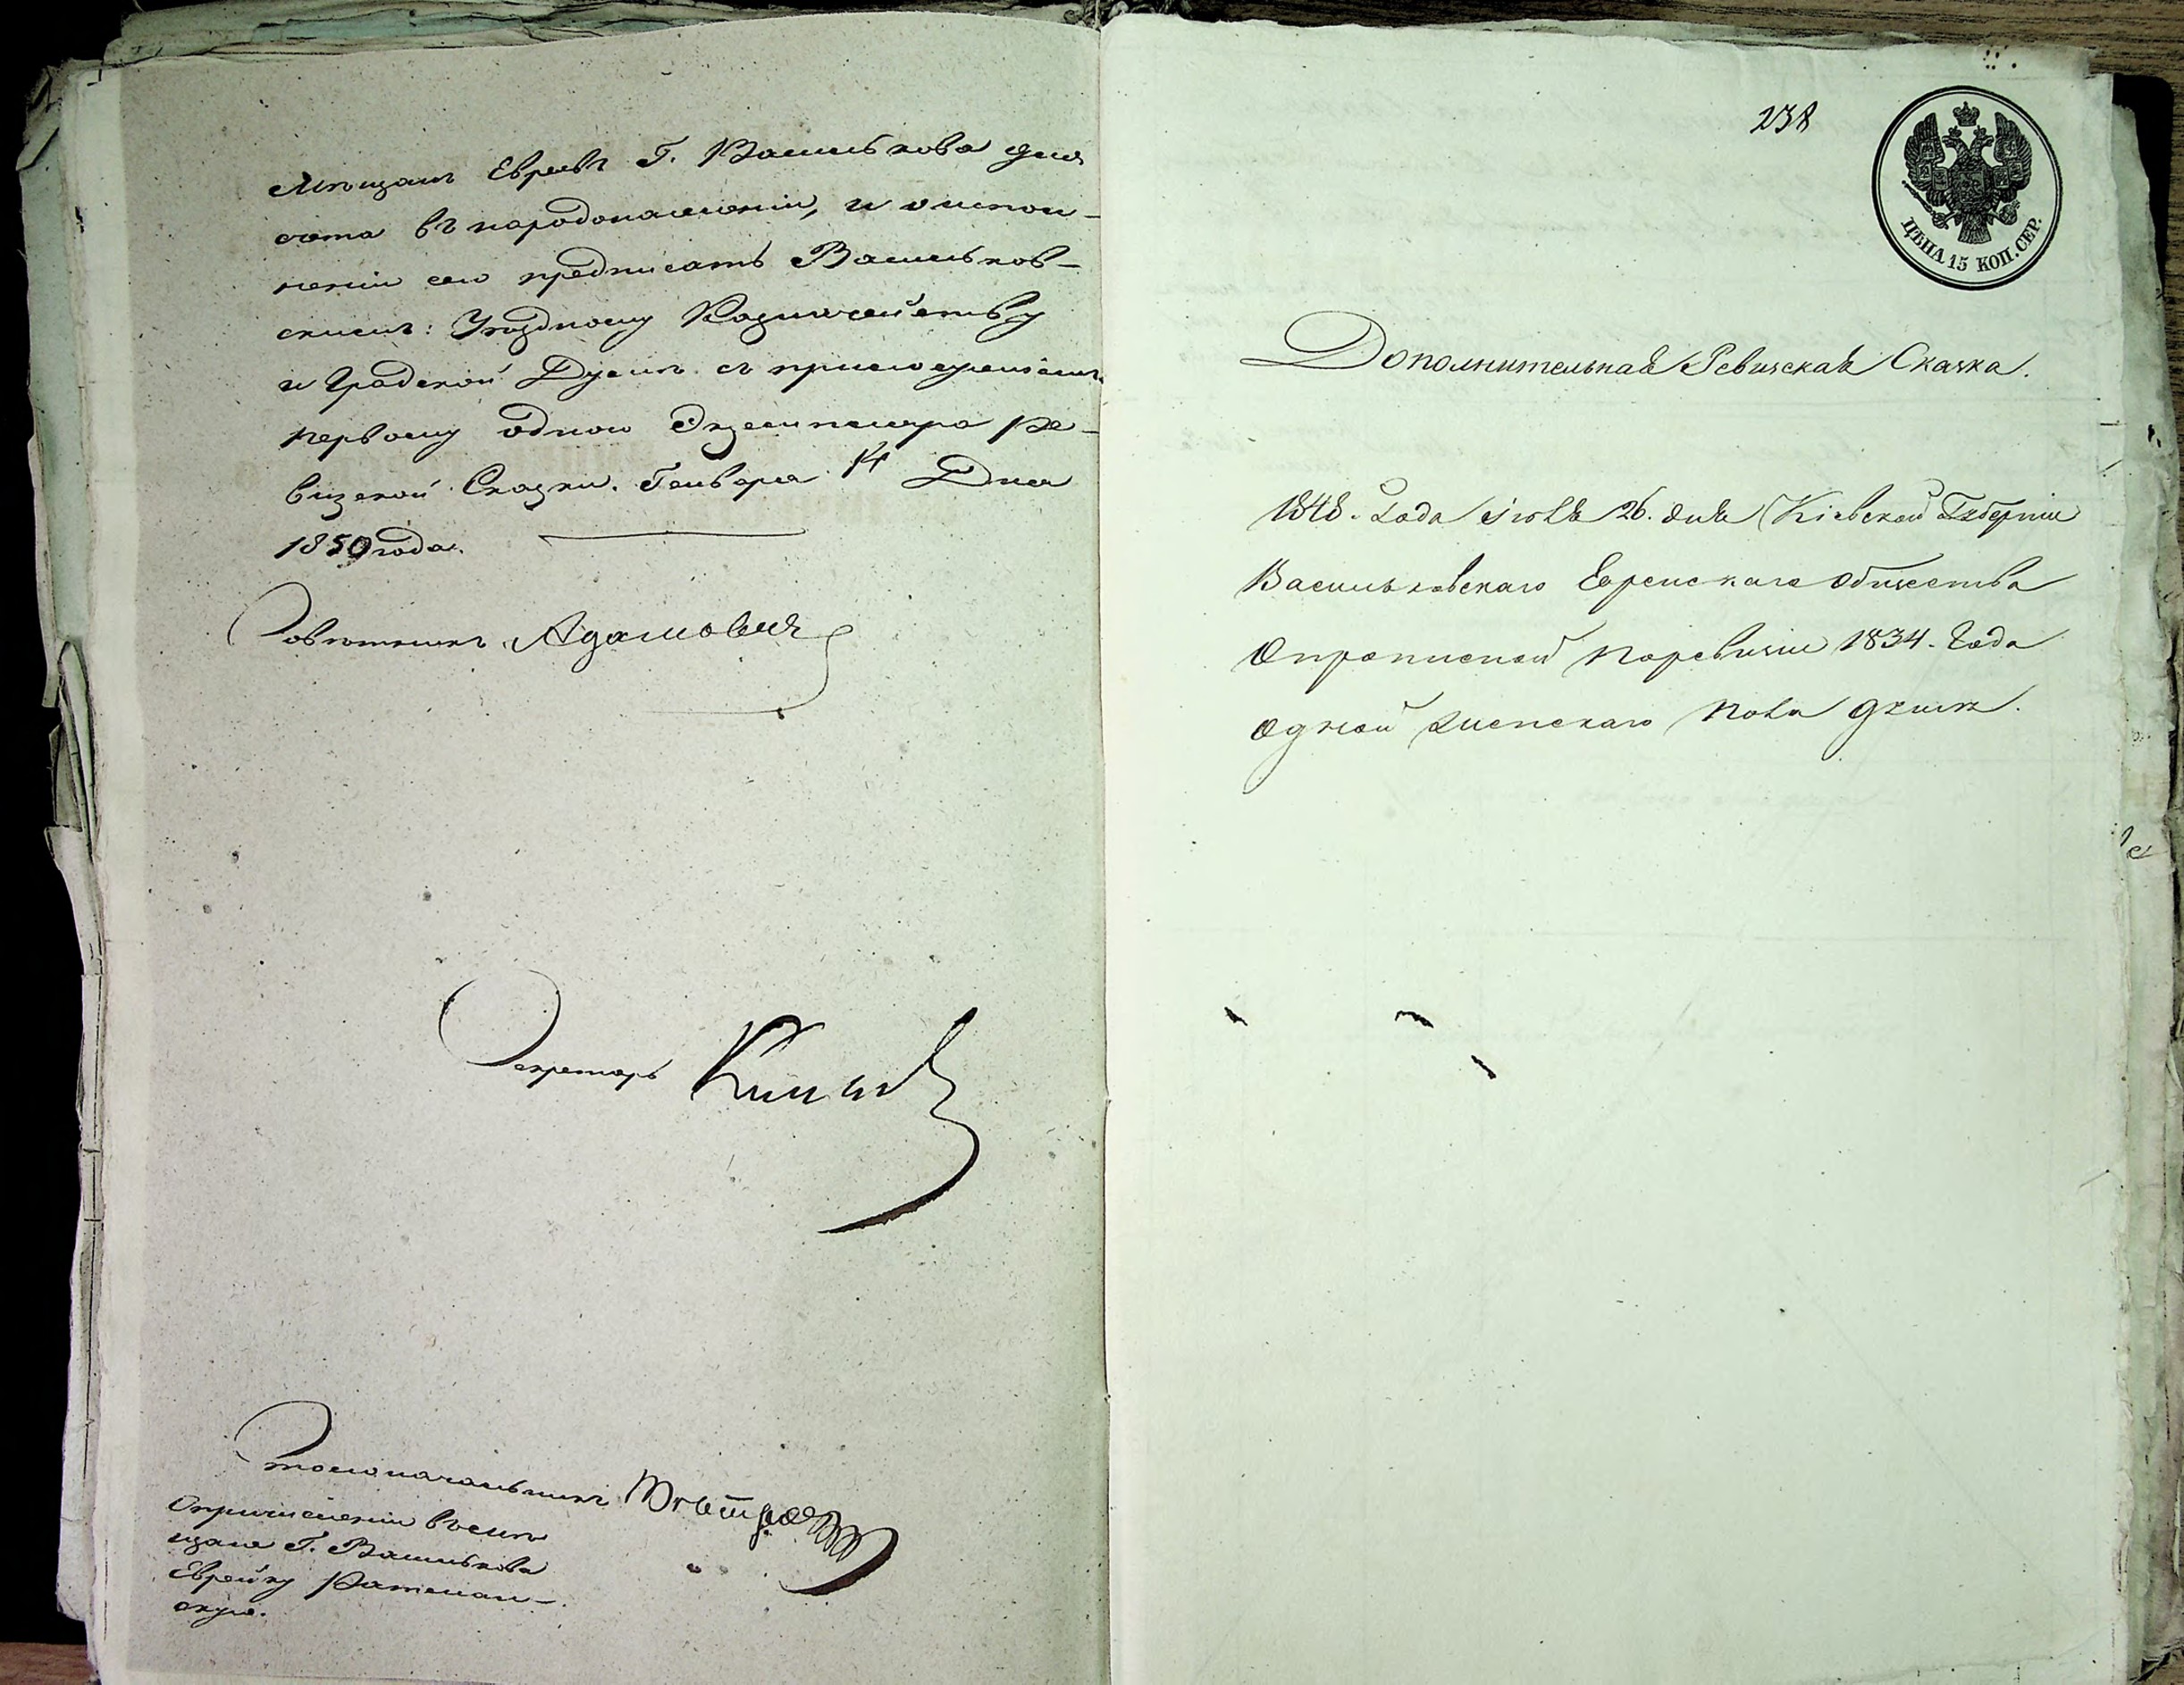 Мѣщанъ Евреевъ Г. Василькова для
счета въ народонаселеніи, и о испол-
неніи сего предписать Васильков-
скимъ: Уѣздному Казначейству
и Градской Думѣ съ приложеніемъ
первому одного Экземпляра Ре-
визской Сказки. Генваря 14 Дня
1850 года.
Совѣтникъ Адамовичъ
Секретарь
Столоначальникъ
О причисленіи въ мѣ-
щане Г. Василькова
Еврейку
скую.
238
ЦѢНА 15 КОП. СЕР.
Дополнительная Ревизская Сказка.
1848. Года іюля 26. дня Кіевской Губерніи
Васильковскаго Еврейскаго Общества
О прописной по ревизіи 1834. Года
одной женскаго пола душѣ.